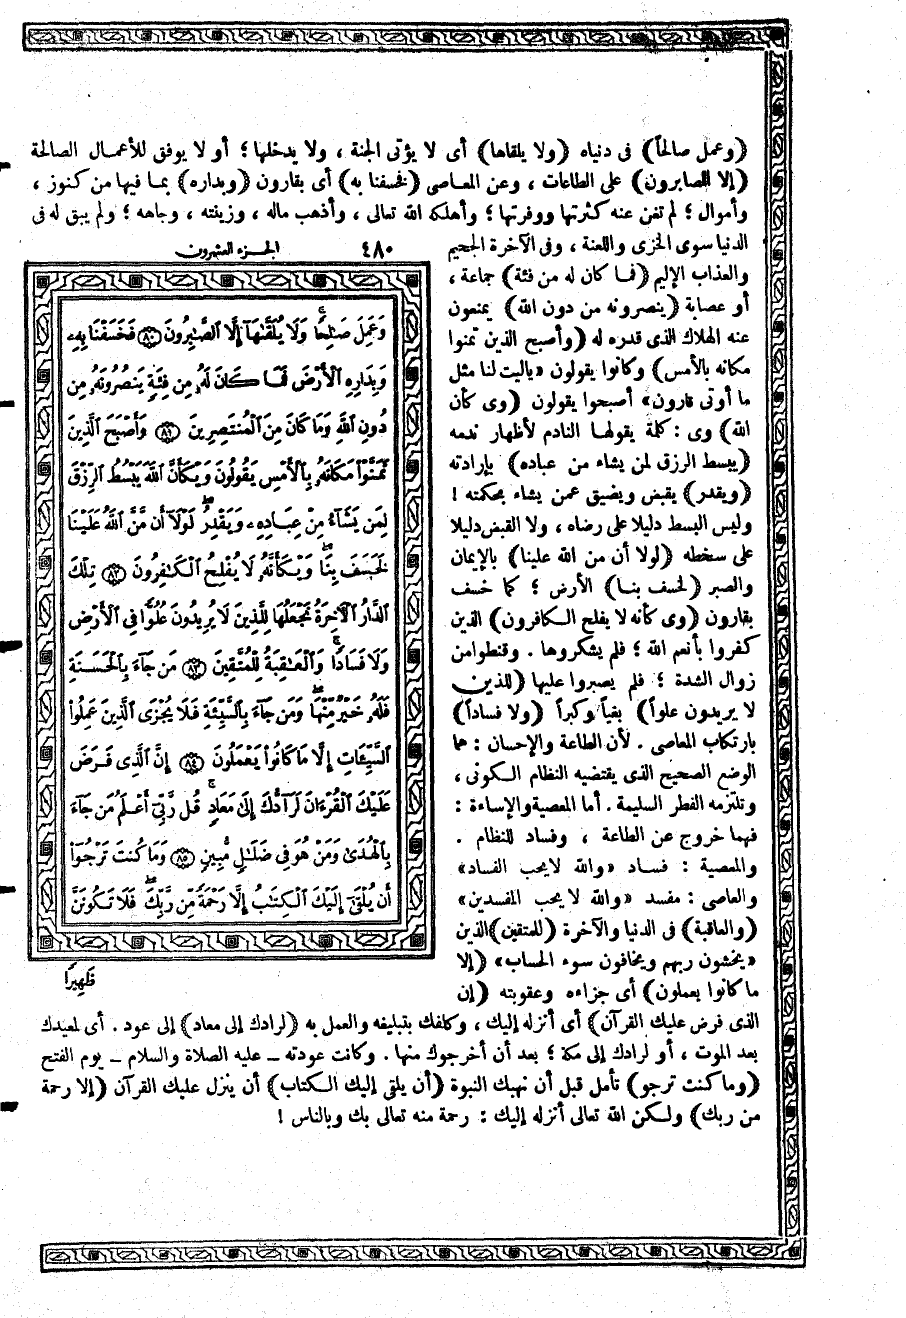 (وعمل صالحاً) فى دنياه (ولا يلقاها) أى لا يؤتى الجنة ، ولا يدخلها ؛ أو لا يوفق للأعمال الصالحة
(إلا الصابرون) على الطاعات ، وعن المعاصى (فخسفنا به) أى بقارون (وبداره) بما فيها من كنوز ،
وأموال ؛ لم تغن عنه كثرتها ووفرتها ؛ وأهلكه الله تعالى ، وأذهب ماله ، وزينته ، وجاهه ؛ ولم يبق له فى
الدنيا سوى الخزى واللعنة ، وفى الآخرة الجحيم
والعذاب الإليم (فما كان له من فئة) جماعة ،
أو عصابة (ينصرونه من دون الله) يمنعون
عنه الهلاك الذى قدره له (وأصبح الذين تمنوا
مكانه بالأمس) وكانوا يقولون «ياليت لنا مثل
ما أوتى قارون» أصبحوا يقولون (وى كأن
الله) وى : كلمة يقولها النادم لأظهار ندمه
(يبسط الرزق لمن يشاء من عباده) بإرادته
(ويقدر) يقبض ويضيق عمن يشاء بحكمته !
وليس البسط دليلا على رضاه ، ولا القبض دليلا
على سخطه (لولا أن من الله علينا) بالإيمان
والصبر (لخسف بنا) الأرض ؛ كما خسف
بقارون (وى كأنه لا يفلح الكافرون) الذين
كفروا بأنعم الله ؛ فلم يشكروها . وقنطوا من
زوال الشدة ؛ فلم يصبروا عليها (للذين
لا يريدون علواً) بغياً وكبراً (ولا فساداً)
بارتكاب المعاصى . لأن الطاعة والإحسان : هما
الوضع الصحيح الذى يقتضيه النظام الكونى ،
وتلتزمه الفطر السليمة . أما المعصية والإساءة :
فهما خروج عن الطاعة ، وفساد للنظام .
والمعصية : فساد «والله لا يحب الفساد»
والعاصى : مفسد «والله لا يحب المفسدين»
(والعاقبة) فى الدنيا والآخرة (للمتقين) الذين
«يخشون ربهم ويخافون سوء الحساب» (إلا
ما كانوا يعملون) أى جزاءه وعقوبته (إن
الجزء العشرون ٤٨٠
وَعَمِلَ صَالِحًا وَلَا يُلَقَّاهَا إِلَّا الصَّابِرُونَ ٨٠ فَخَسَفْنَا بِهِ
وَبِدَارِهِ الْأَرْضَ فَمَا كَانَ لَهُ مِن فِئَةٍ يَنصُرُونَهُ مِن
دُونِ اللَّهِ وَمَا كَانَ مِنَ الْمُنتَصِرِينَ ٨١ وَأَصْبَحَ الَّذِينَ
تَمَنَّوْا مَكَانَهُ بِالْأَمْسِ يَقُولُونَ وَيْكَأَنَّ اللَّهَ يَبْسُطُ الرِّزْقَ
لِمَن يَشَاءُ مِنْ عِبَادِهِ وَيَقْدِرُ لَوْلَا أَن مَّنَّ اللَّهُ عَلَيْنَا
لَخَسَفَ بِنَا وَيْكَأَنَّهُ لَا يُفْلِحُ الْكَافِرُونَ ٨٢ تِلْكَ
الدَّارُ الْآخِرَةُ نَجْعَلُهَا لِلَّذِينَ لَا يُرِيدُونَ عُلُوًّا فِي الْأَرْضِ
وَلَا فَسَادًا وَالْعَاقِبَةُ لِلْمُتَّقِينَ ٨٣ مَن جَاءَ بِالْحَسَنَةِ
فَلَهُ خَيْرٌ مِّنْهَا وَمَن جَاءَ بِالسَّيِّئَةِ فَلَا يُجْزَى الَّذِينَ عَمِلُوا
السَّيِّئَاتِ إِلَّا مَا كَانُوا يَعْمَلُونَ ٨٤ إِنَّ الَّذِي فَرَضَ
عَلَيْكَ الْقُرْءَانَ لَرَادُّكَ إِلَى مَعَادٍ قُل رَّبِّي أَعْلَمُ مَن جَاءَ
بِالْهُدَى وَمَنْ هُوَ فِي ضَلَالٍ مُّبِينٍ ٨٥ وَمَا كُنتَ تَرْجُوا
أَن يُلْقَى إِلَيْكَ الْكِتَابُ إِلَّا رَحْمَةً مِّن رَّبِّكَ فَلَا تَكُونَنَّ
ظَهِيرًا
الذى فرض عليك القرآن) أى أنزله إليك ، وكلفك بتبليغه والعمل به (لرادك إلى معاد) إلى عود . أى لمعيدك
بعد الموت ، أو لرادك إلى مكة ؛ بعد أن أخرجوك منها . وكانت عودته ــ عليه الصلاة والسلام ــ يوم الفتح
(وما كنت ترجو) تأمل قبل أن نهبك النبوة (أن يلقى إليك الكتاب) أن ينزل عليك القرآن (إلا رحمة
من ربك) ولكن الله تعالى أنزله إليك : رحمة منه تعالى بك وبالناس !